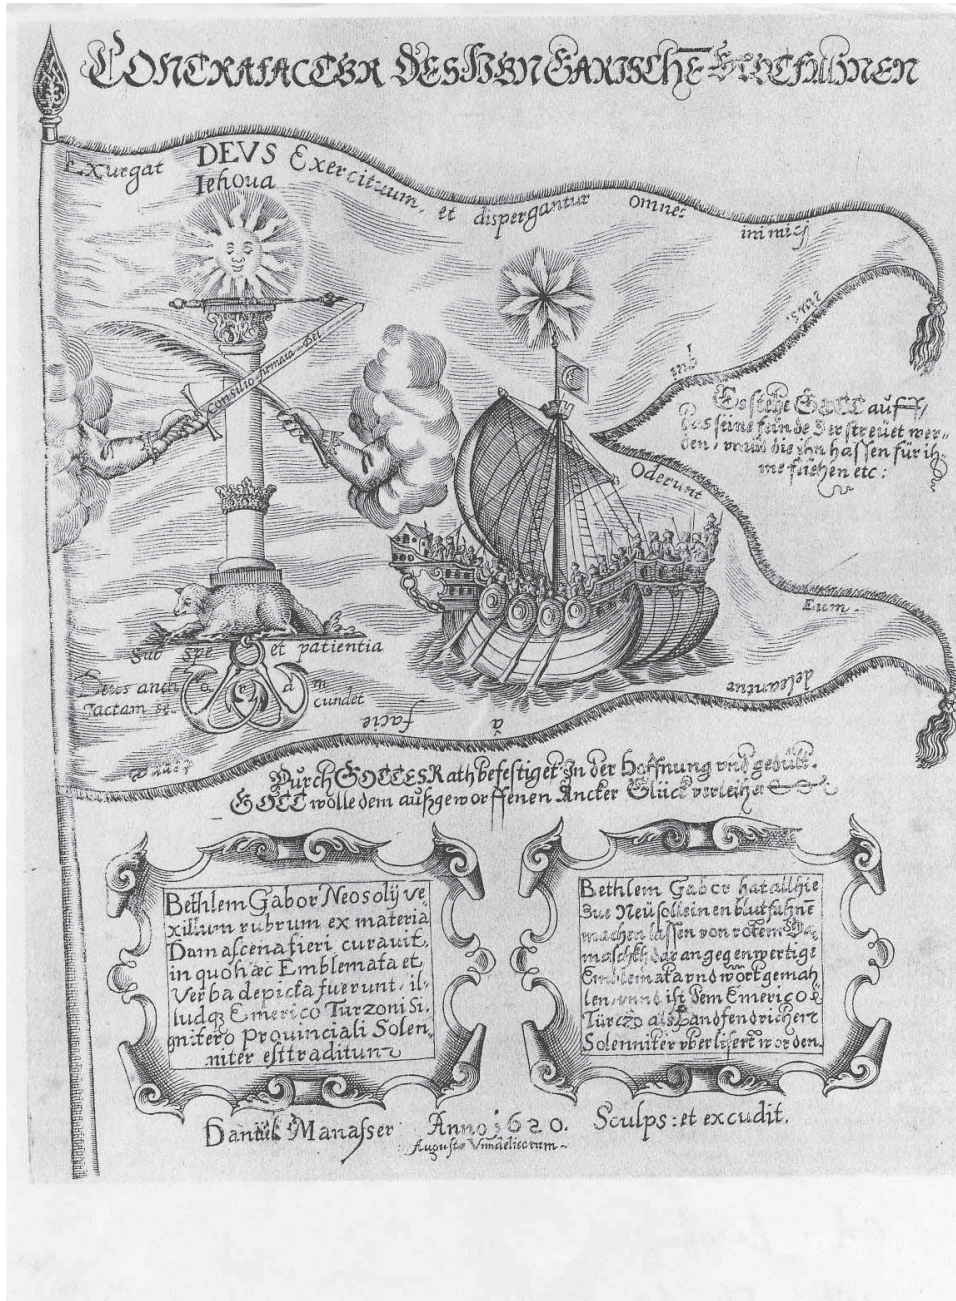 CONTRAFACTUR DES HUNGARISCHĒ BLUTFAHNEN
Exurgat DEVS Exercituum, et dispergantur omnes inimicj
Iehova
eius,
Es stehe GOTT auff,
das seine feinde zerstreüet wer-
den, vnnd die ihn hassen für ih-
me fliehen etc:
Consilio firmata Dei
Oderunt
Eum.
Sub spe et patientia
Deus anchoram
Iactam se- cundet
à facie
Durch GOTTES Rath befestiget In der Hoffnung vnd gedült.
GOTT wölle dem außgeworffenen Ancker Glück verleihe
Bethlem Gabor Neosolij ve,
xillum rubrum ex materia
Damascena fieri curavit,
in quo hæc Emblemata et
Verba depicta fuerunt, il-
ludq₃ Emerico Turzoni Si,
gnifero Provinciali Solen,
niter est traditum
Bethlem Gabor hat allhie
Zue Neüsoll einen blutfahnē
machen lassen von rotem Da,
maschkh dar an gegenwertige
Emblemata vnd wört gemah
len, vnnd ist dem Emerico
Türczo als Landfendrichen
Solenniter vberlifert worden.
Daniel Manasser Anno 1620. Sculps: et excudit.
Augustæ Vindelicorum